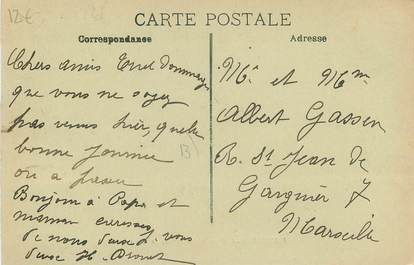 12€
CARTE POSTALE
Correspondance
Adresse
Chers amis quel dommage
que vous ne soyez
pas venus hier, quelle
bonne journée
on a passé
Bonjour à Papa et
maman caresses
de nous deux à vous
deux H.
Mr et Mme
Albert Gassen
R. St Jean de
Garguier 7
Marseille
13